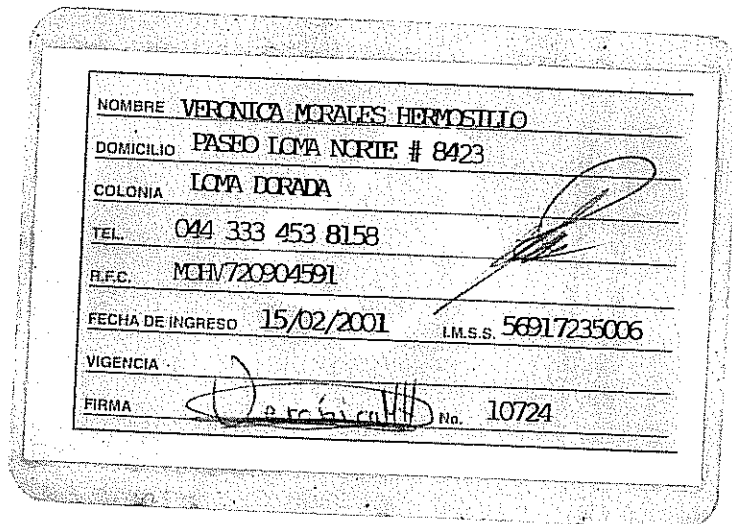 NOMBRE VERONICA MORALES HERMOSILLO
DOMICILIO PASEO LOMA NORTE # 8423
COLONIA LOMA DORADA
TEL. 044 333 453 8158
R.F.C. MOHV720904591
FECHA DE INGRESO 15/02/2001 I.M.S.S. 56917235006
VIGENCIA
FIRMA Veronica No. 10724